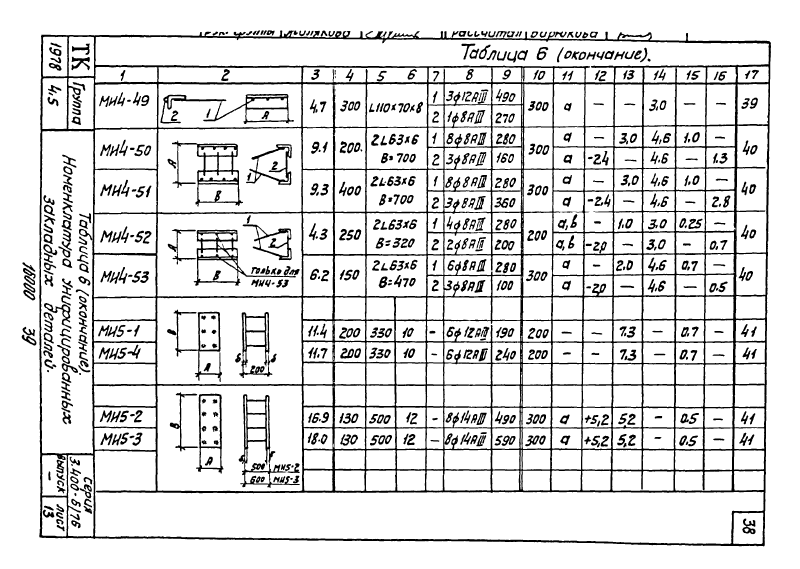 Таблица 6 (окончание).
1 2 3 4 5 6 7 8 9 10 11 12 13 14 15 16 17
МИ4-49 2 1 А 4,7 300 L110×70×8 1 3ф12АIII 490 300 а — — 3.0 — — 39
2 1ф8АIII 270
МИ4-50 А В 1 2 9.1 200. 2L63×6 В=700 1 8ф8АIII 280 300 а — 3,0 4,6 1.0 — 40
2 3ф8АIII 160 а -2.4 — 4.6 — 1.3
МИ4-51 9.3 400 2L63×6 В=700 1 8ф8АIII 280 300 а — 3,0 4,6 1,0 — 40
2 3ф8АIII 360 а -2.4 — 4.6 — 2.8
МИ4-52 А В 1 2 4.3 250 2L63×6 В=320 1 4ф8АIII 280 200 а,в — 1.0 3.0 0.25 — 40
2 2ф8АIII 200 а,в -2,0 — 3,0 — 0.7
только для МИ4-53
МИ4-53 6.2 150 2L63×6 В=470 1 6ф8АIII 280 300 а — 2.0 4.6 0.7 — 40
2 3ф8АIII 100 а -2,0 — 4.6 — 0.5
В А Б Б 200
МИ5-1 11.4 200 330 10 - 6ф12АIII 190 200 — — 7.3 — 0.7 — 41
МИ5-4 11.7 200 330 10 - 6ф12АIII 240 200 — — 7.3 — 0.7 — 41
В А Б Б
МИ5-2 16.9 130 500 12 - 8ф14АIII 490 300 а +5,2 5,2 — 0.5 — 41
МИ5-3 18.0 130 500 12 — 8ф14АIII 590 300 а +5,2 5,2 — 0.5 — 41
500 МИ5-2
600 МИ5-3
ТК
1978
Группа
4,5
Таблица 6 (окончание).
Номенклатура унифицированных
закладных деталей.
16000 39
Серия
3.400-6/76
выпуск —
Лист
13
38